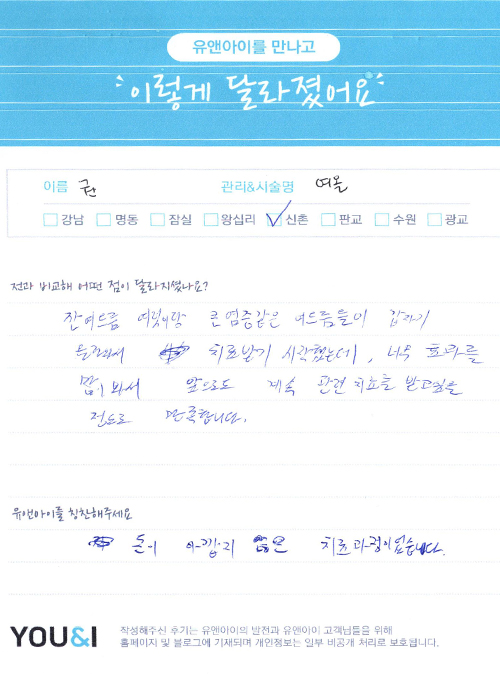 유앤아이를 만나고
이렇게 달라졌어요
이름 권 관리&시술명 여몰
강남 명동 잠실 왕십리 신촌 판교 수원 광교
전과 비교해 어떤 점이 달라지셨나요?
잔여드름 여럿이랑 큰 염증같은 여드름들이 갑자기
치료받기 시작했는데, 너무 효과를
많이 봐서 앞으로도 계속 관련 치료를 받고싶을
정도로 만족합니다.
유앤아이를 칭찬해주세요
돈이 아깝지 않은 치료과정이었습니다.
YOU&I
작성해주신 후기는 유앤아이의 발전과 유앤아이 고객님들을 위해
홈페이지 및 블로그에 기재되며 개인정보는 일부 비공개 처리로 보호됩니다.